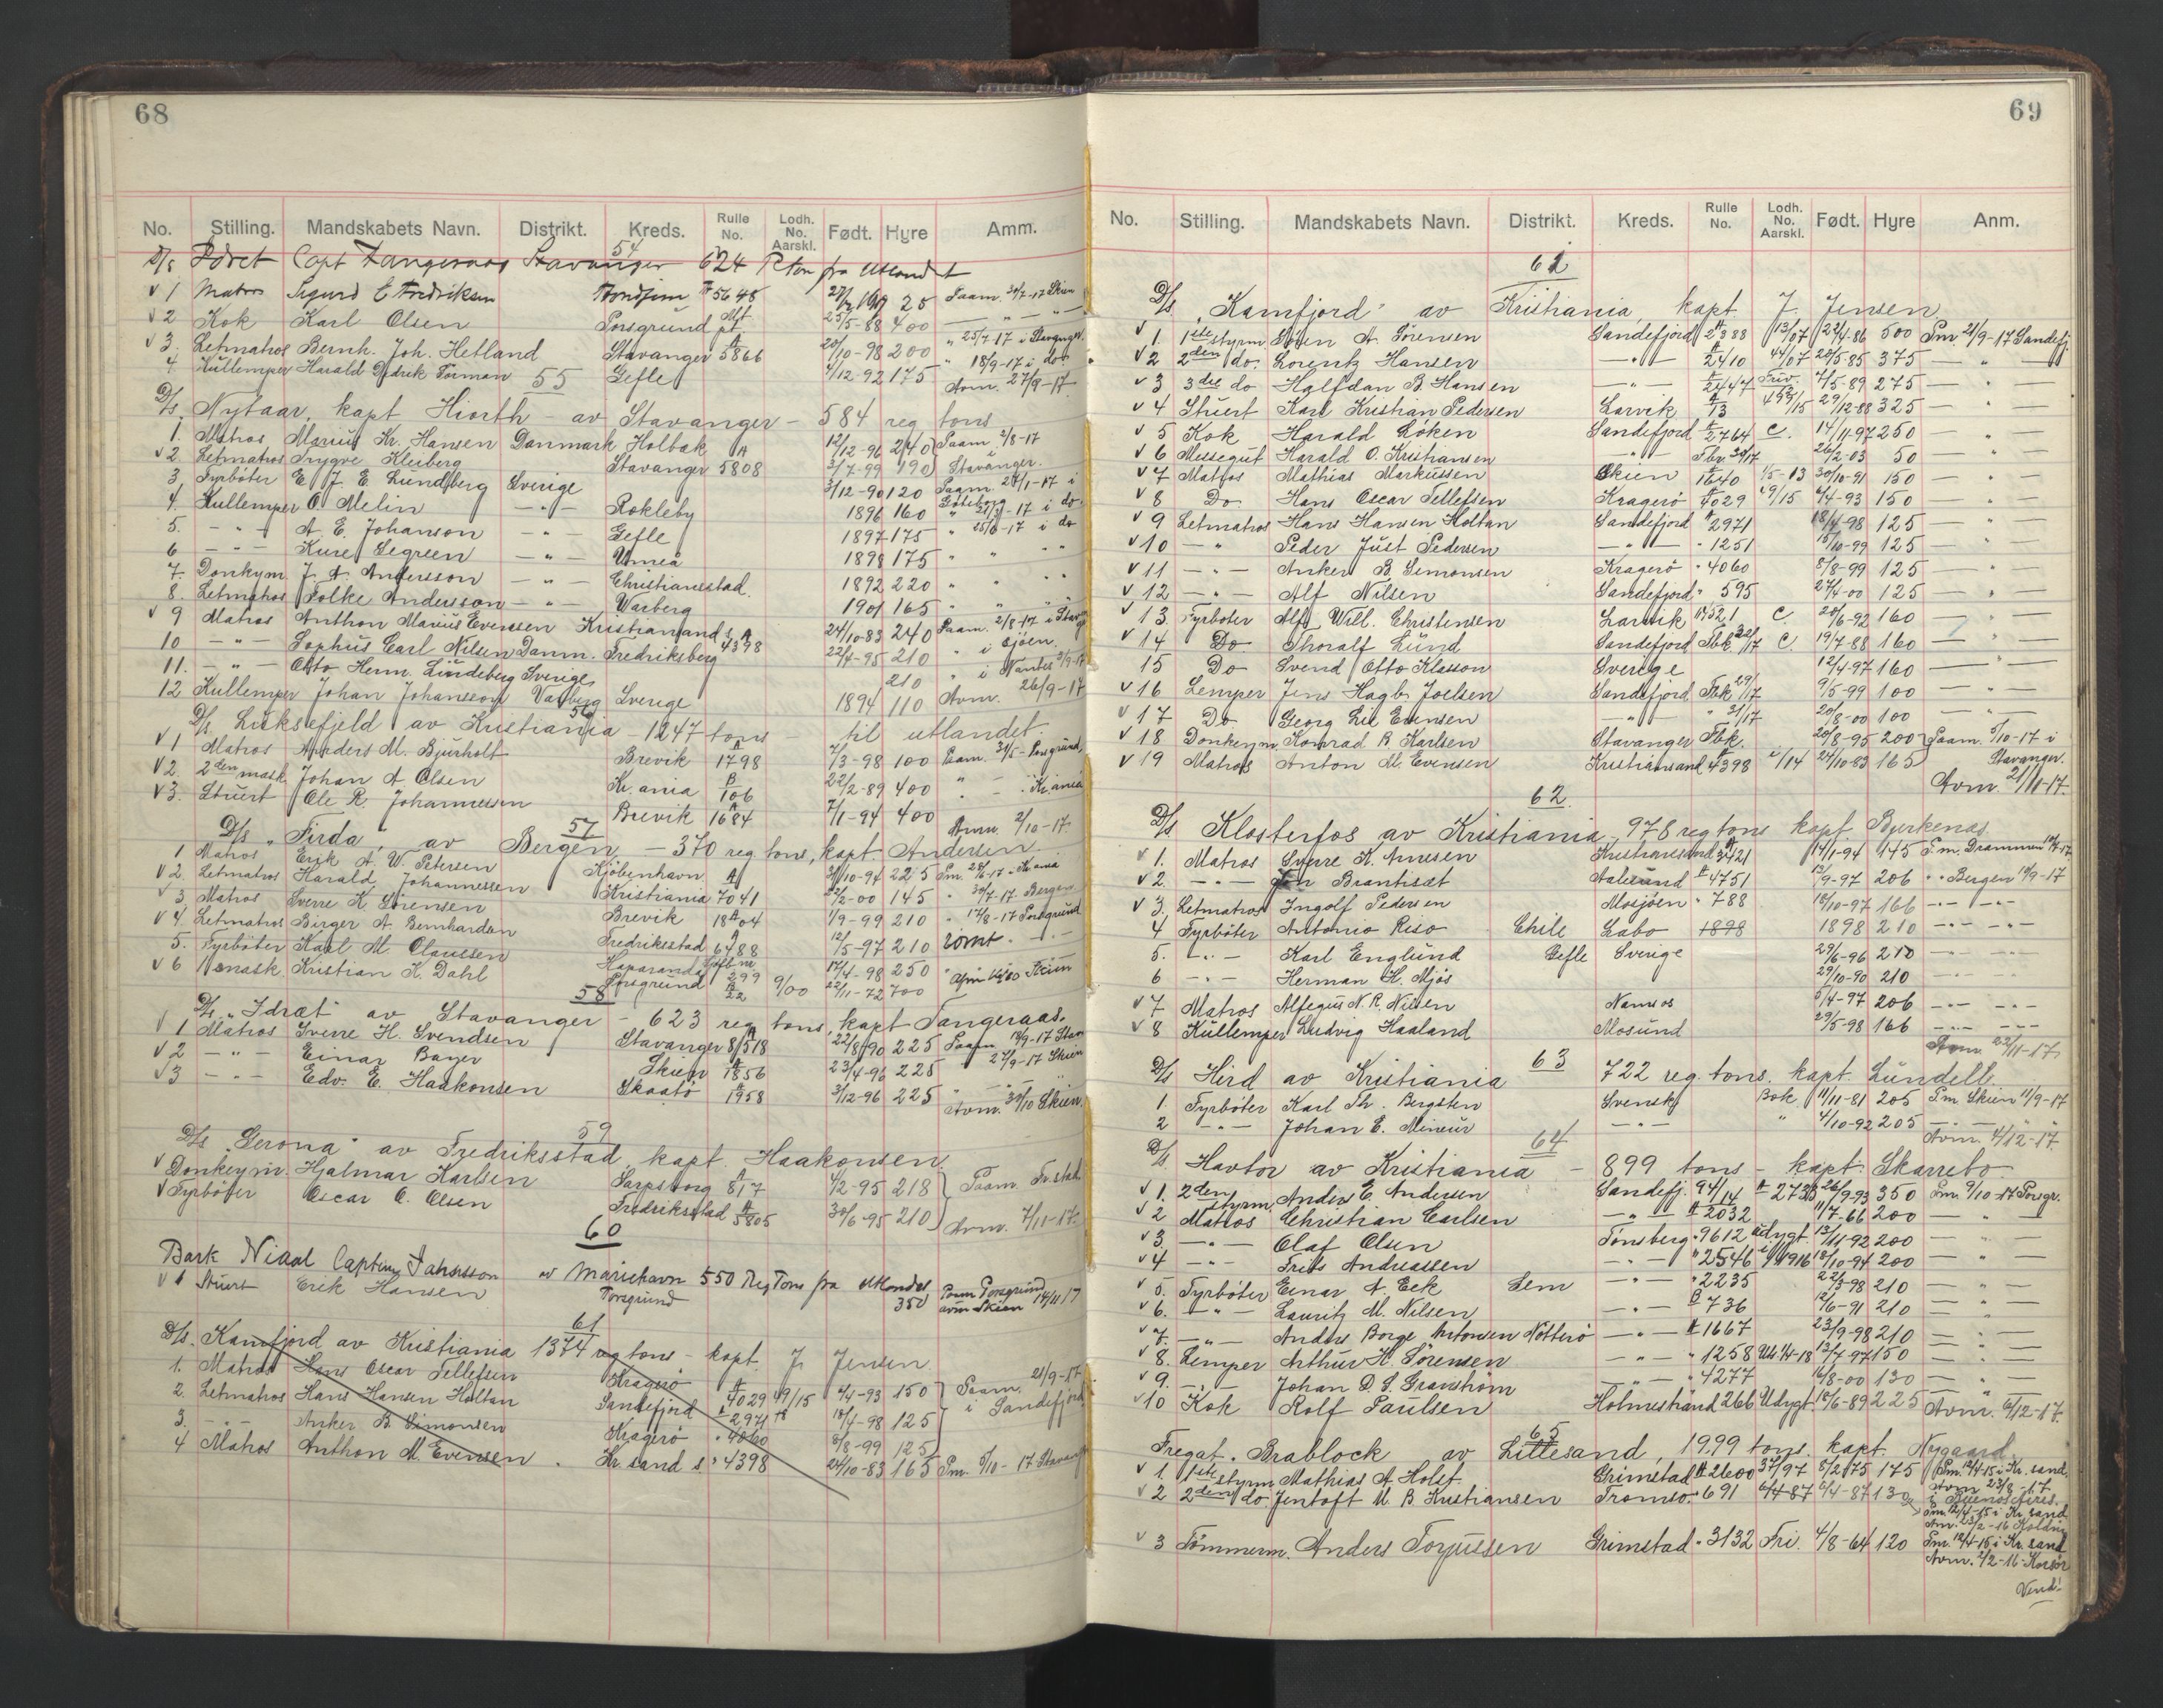 68
No. Stilling. Mandskabets Navn. Distrikt. Kreds. Rulle No. Lodh. No. Aarskl. Født. Hyre Amm.
54
D/s Idræt Capt Tangeraas Stavanger 624 R ton fra Utlandet
v 1 Matros Sigurd E Fredriksen Trondhjem A 5648 25 Paam. 30/7-17 Skien
v 2 Kok Karl Olsen Porsgrund 25/5-88 400 — " — " —
v 3. Letmatros Bernh. Joh. Hetland Stavanger A 5866 20/10-98 200 " 25/7-17 i
4 Kullemper Harald Didrik Forman Gefle 7/12-92 175 " 18/9-17 i do.
Avm. 27/9-17
55
D/s. Nytaar, kapt Hiorth - av Stavanger - 584 reg tons
1. Matros Marius Kr. Hansen Danmark Holbak 12/12-96 240 Paam 2/8-17
v 2 Letmatros Trygve Kleiberg Stavanger A 5808 3/7-99 190 i Stavanger.
3, Fyrbøter E. J. E Lundberg Sverige 3/12-90 120 Paam 27/1-17 i Göteborg
4. Kullemper O. Melin — " — Rokleby 1896 160 " 27/3-17 i do.
5. — " — A. E. Johanson — " — Gefle 1897 175 " 25/6-17 i do
6 — " — Kure Segreen — " — Umeå 1898 175 " " " "
7. Donkym. J. A. Andersson — " — Christiansstad. 1892 220 " " " "
8. Letmatros Folke Andersson — " — Warberg 1901 165 " " " "
v 9 Matros Anthon Marius Evensen Kristiansand s. A 4398 24/10-83 240 Paam. 2/8-17 i Stavgr
10 — " — Sophus Carl Nilsen Danm. Fredriksberg 22/4-95 210 " i Ejöen.
11. — " — Otto Herm. Lindeberg Sverige 210 " i Nantes 3/9-17
12 Kullemper Johan Johansson Varberg Sverige 1894 110 Avm. 26/9-17
56
D/s Luksefjeld av Kristiania - 1247 tons - til utlandet
v 1 Matros Anders M. Bjurholt Brevik A 1798 7/3-98 100 Paam. 31/5- Porsgrund,
v 2. 2den mask. Johan A Olsen Kr.ania B 106 22/2-89 400 " - " Kr.ania
v 3. Stuert Ole R. Johannessen Brevik A 1684 7/1-94 400
Avm. 2/10-17.
57
D/s „Firda", av Bergen, - 370 reg. tons, kapt. Andersen.
1 Matros Erik A. W. Petersen Kjöbenhavn 31/10-94 225 Pm. 21/6-17. Kr.ania
v 2. Letmatros Harald Johannessen Kristiania A 7041 22/2-00 145 " 30/7-17. Bergen
v 3, Matros Sverre K Sörensen Brevik A 1804 1/9-99 210 " 17/8-17 Porsgrund
v 4. Letmatros Birger A. Bernhardsen Fredriksstad A 6788 12/5-97 210 römt. - . -
5. Fyrbøter Karl M. Olaussen Haparanda 17/4-98 250
v 6 1 mask. Kristian K. Dahl Porsgrund A 22 9/00 22/11-72 700 Skien
58
D/s „Idræt" av Stavanger - 623 reg tons, kapt Tangeraas.
v 1 Matros Sverre H. Svendsen Stavanger A 8/518 22/8-90 225 Paam 18/9-17 Stavr
v 2 — " — Einar Bayer Skien A 1856 23/4-96 225 " 27/9-17 Skien
v 3 — " — Edv. E. Haakonsen Skaatö " 1958 3/12-96 225 " — " —
Avm. 30/10 Skien.
59
D/s „Gerona" av Fredriksstad, kapt. Haakonsen
v Donkeym. Hjalmar Karlsen Sarpsborg A 817 4/2-95 218 Paam. Fr.stad.
v Fyrbøter Oscar O. Olsen Fredriksstad A 5805 30/6-95 210 Avm. 7/11-17.
60
Bark Niaal Captein Johnsson av Mariehavn 550 Reg Tons fra Utlandet
v 1 Stuert Erik Hansen Porsgrund 350 Paam Porsgrund
avm Skien 14/11 17
61
D/s. Kamfjord av Kristiania 1374 reg tons - kapt. J. Jensen
1. Matros Hans Oscar Tellefsen Kragerö A 4029 49/15 4/4-93 150 Paam. 21/9-17.
2. Letmatros Hans Hansen Holtan Sandefjord A 2971 18/4-98 125 i Sandefjord
3. — " — Anker B. Simonsen Kragerö " 4060 8/8-99 125
4 Matros Anthon M. Evensen Kr.sand s. " 4398 24/10-83 165 Pm. 5/10-17 Stavanger
69
No. Stilling. Mandskabets Navn. Distrikt. Kreds. Rulle No. Lodh. No. Aarskl. Født. Hyre Anm.
61
D/s „Kamfjord" av Kristiania, kapt J. Jensen
v 1. 1ste styrm. Sören A. Sörensen Sandefjord A 2388 13/07 22/4-86 500 Pm 21/9-17 Sandefj.
v 2 2den do. Lorentz Hansen — " — A 2410 44/07 28/5-85 375 — "
v 3 3die do Halfdan B. Hansen — " — A 2447 Friv. 4/5-89 275 — " —
v 4 Stuert Karl Kristian Pedersen Larvik A 13 29/12-88 325 — " —
v 5 Kok Harald Løken Sandefjord A 2764 C. 14/11-97 250 — " —
v 6 Messegut Harald O. Kristiansen — " — Fbr 20/17 26/2-03 50 — " —
v 7 Matros Mathias Markussen Skien A 1640 1/5-13 30/10-91 150 — " —
v 8 Do. Hans Oscar Tellefsen Kragerö A 4029 49/15 4/4-93 150 — " —
v 9 Letmatros Hans Hansen Holtan Sandefjord A 2971 18/4-98 125 — " —
v 10 — " Peder Just Pedersen — " — " 1251 15/10-99 125 — " —
v 11 — " — Anker B. Simonsen Kragerö " 4060 8/8-99 125 — " —
v 12 — " — Alf Nilsen Sandefjord " 595 27/4-00 125 — " —
v 13. Fyrbøter Alf Will. Christensen Larvik A 1521 C. 20/6-92 160 — " —
v 14 Do Thoralf Lund Sandefjord Fbk 22/17 C. 19/7-88 160 — " —
15 Do Svend Otto Klasson Sverige 12/4-97 160 — " —
v 16 Lemper Jens Hagb. Joelsen Sandefjord Fbk 29/17 9/5-99 100 — " —
v 17 Do Georg Lie Evensen — " — " 31/17 20/8-00 100 — " —
v 18 Donkeym. Konrad B. Karlsen Stavanger Fbk. 20/8-95 200 Paam. 5/10-17 i
v 19 Matros Anton M. Evensen Kristiansand A 4398 24/10-83 165 Stavanger.
Avm. 21/11-17.
62.
D/s Klosterfos av Kristiania - 978 reg tons kapt Bjerkenas
v 1. Matros Sverre K. Arnesen Kristiansund A 3421 14/1-94 145 P.m. Drammen
v 2. — " — Brantisæt Aalesund A 4751 13/9-97 206 " " Bergen 19/9-17
v 3. Letmatros Ingolf Pedersen Mosjöen " 788 18/10-97 166 — " — — " —
4 Fyrbøter Antonio Riso Chile Labo 1898 1898 210 — " — — " —
5. — " — Karl Englund Gefle Sverige 29/6-96 210 — " — — " —
6 — " — Herman H. Mjös 29/10-90 210 — " — — " —
v 7 Matros Alfegus N. R. Nilsen Namsos 5/4-97 206 — " — — " —
v 8 Kullemper Ludvig Haaland Mosund 29/5-98 166 — " — — " —
Avm. 22/11-17.
63
D/s Hird av Kristiania 722 reg. tons. kapt. Lundell
1. Fyrbøter Karl Th. Bergsten Svensk Bok 11/11-81 205 Pm Skien 11/9-17
2 — " — Johan E. Mineur — " — " 4/10-92 205 — " —
Avm. 4/12-17.
64
D/s Havtor av Kristiania - 899 tons - kapt. Skarrebo
v 1. 2den styrm. Anders E. Andersen Sandefj. 94/14 A 2733 26/9-93 350 Pm. 9/10-17 Porsgr.
v 2 Matros Christian Carlsen — " — A 2032 11/7-66 200 — " —
v 3 — " — Olaf Olsen Tönsberg " 9612 Udygt. 13/11-92 200 — " —
v 4 — " — Frits Andreassen — " — " 2546 18/10-94 200 — " —
v 5. Fyrbøter Einar A. Eek Sem — " — " 2235 22/3-98 210 — " —
v 6. — " — Lauritz M. Nilsen — " — B 736 12/6-91 210 — " —
v 7. — " — Anders Borge Antonsen Nötterö — " — A 1667 23/9-98 210 — " —
v 8. Lemper Arthur H. Sörensen — " — " 1258 13/7-97 150 — " —
v 9. — " — Johan D. S. Granström — " — " 4277 16/8-00 130 — " —
v 10 Kok Rolf Paulsen Holmestrand 266 Udygt. 18/6-89 225 — " —
Avm. 6/12-17.
65
Fregat. Brablock av Lillesand, 1999 tons. kapt. Nygaard.
v 1 1ste styrm Mathias A Holst Grimstad A 2600 37/97 8/2 75 175 Pm. 12/4-15 i Kr.sand.
Avm 23/8-17
i Buenos Aires.
v 2 2den do Jentoft M. B. Kristiansen Tromsö " 691 6/4-87 130 Pm. 12/4-15 i Kr.sand
Avm. 23/2-16 Kolding
v 3 Tömmerm. Anders Torjussen Grimstad " 3132 Fri. 4/8-64 120 Pm. 12/4-15 i Kr.sand
Avm. 2/2-16 Korsör
Vend!